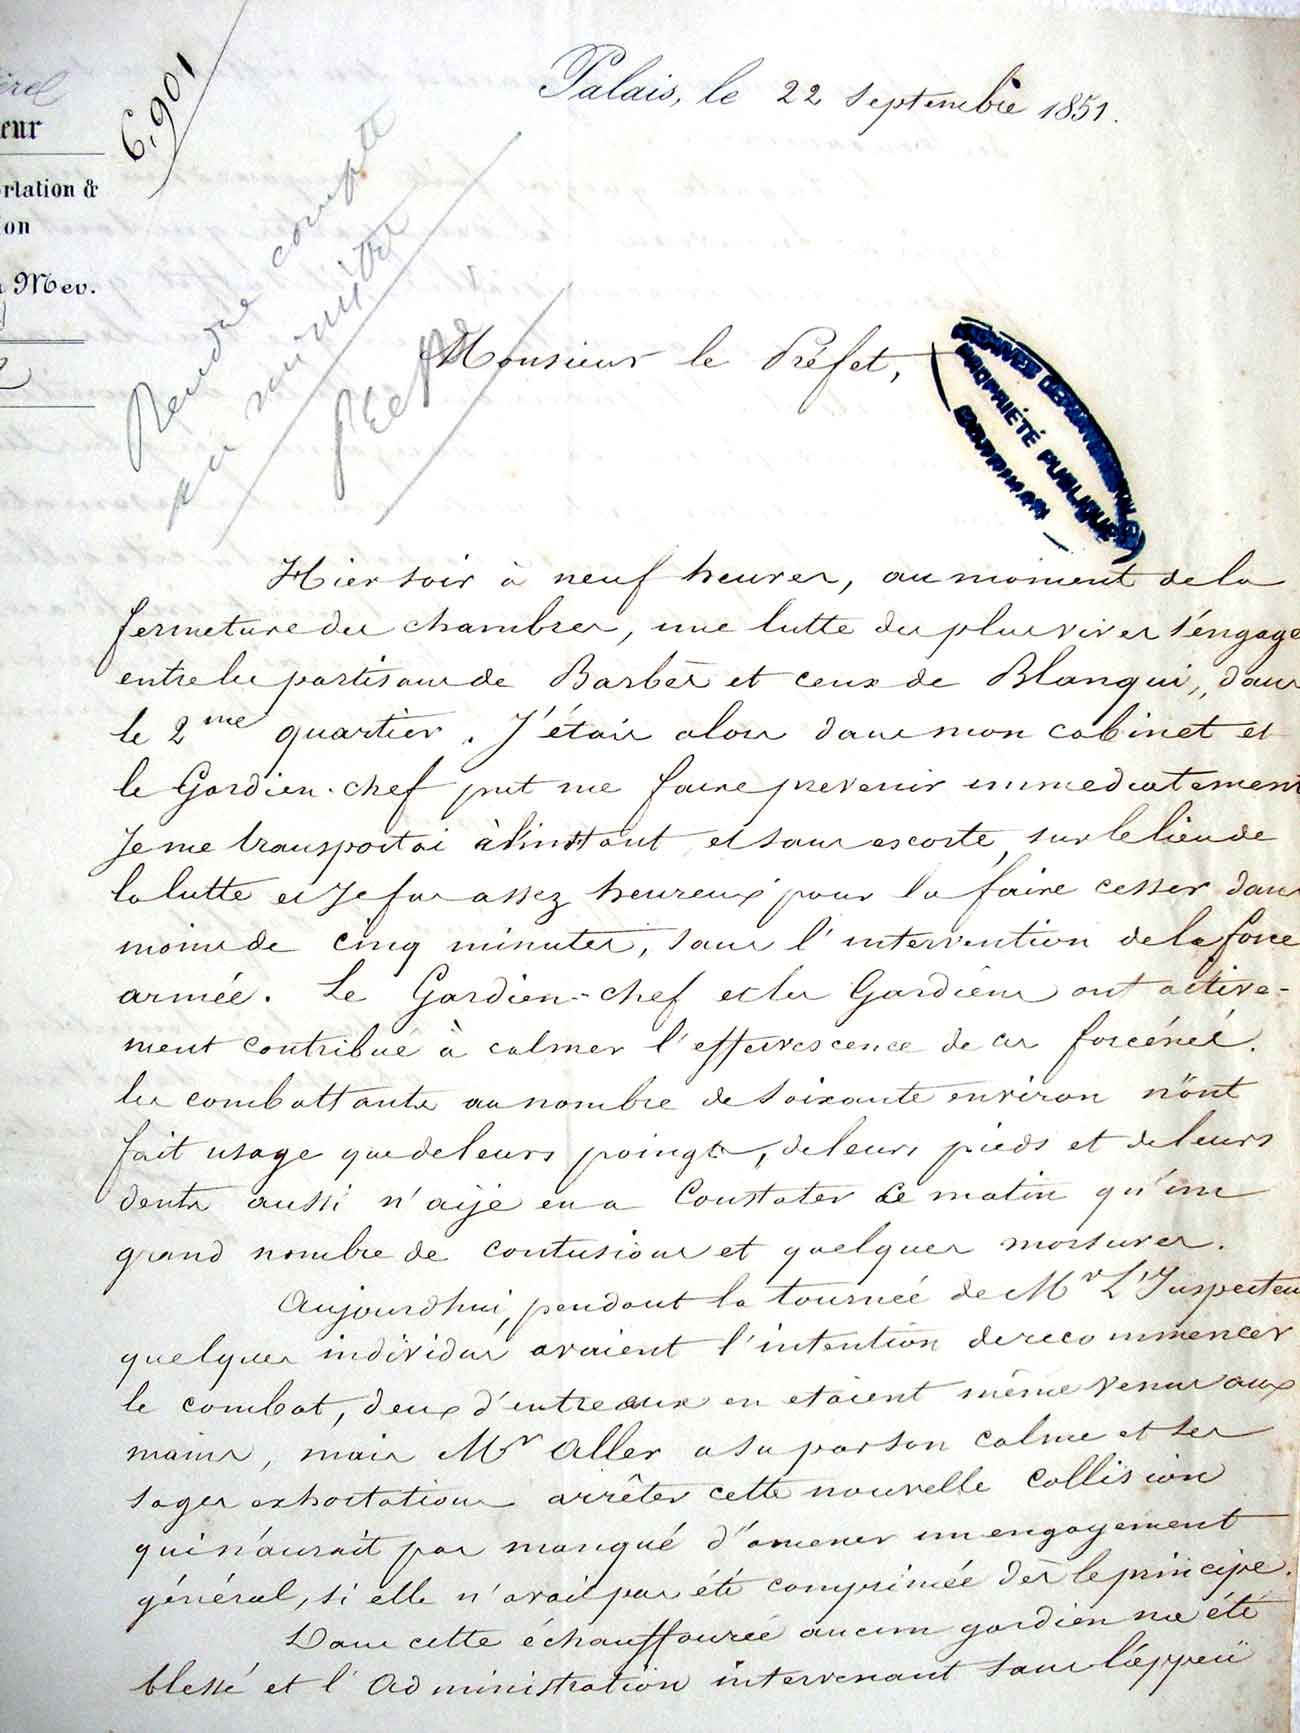 Palais, le 22 septembre 1851.
6,901
eur
rtation &
ion
Mer.
Rendre compte
au ministre
Monsieur le Préfet,
ARCHIVES DÉPARTEMENTALES
PROPRIÉTÉ PUBLIQUE
MORBIHAN
Hier soir à neuf heures, au moment de la
fermeture des chambres, une lutte des plus vives s'engage
entre les partisans de Barbès et ceux de Blanqui, dans
le 2me quartier. J'étais alors dans mon cabinet et
le Gardien-chef put me faire prevenir immediatement
Je me transportai à l'instant et sans escorte, sur le lieu de
la lutte et Je fus assez heureux pour la faire cesser dans
moins de cinq minutes, sans l'intervention de la force
armée. Le Gardien-chef et les Gardiens ont active-
ment contribué à calmer l'effervescence de ces forcénés.
les combattants au nombre de soixante environ n'ont
fait usage que de leurs poings, de leurs pieds et de leurs
dents aussi n'aije eu a Constater ce matin qu'un
grand nombre de contusions et quelques morsures.
Aujourdhui, pendant la tournée de Mr L'Inspecteu
quelques individus avaient l'intention de recommencer
le combat, deux d'entre eux en etaient même venus aux
mains, mais Mr Aller a su par son calme et ses
sages exhortations arrêter cette nouvelle collision
qui n'aurait pas manqué d'amener un engagement
général, si elle n'avait pas été comprimée dès le principe.
Dans cette échauffourée aucun gardien na été
blessé et l'Administration intervenant sans l'appui